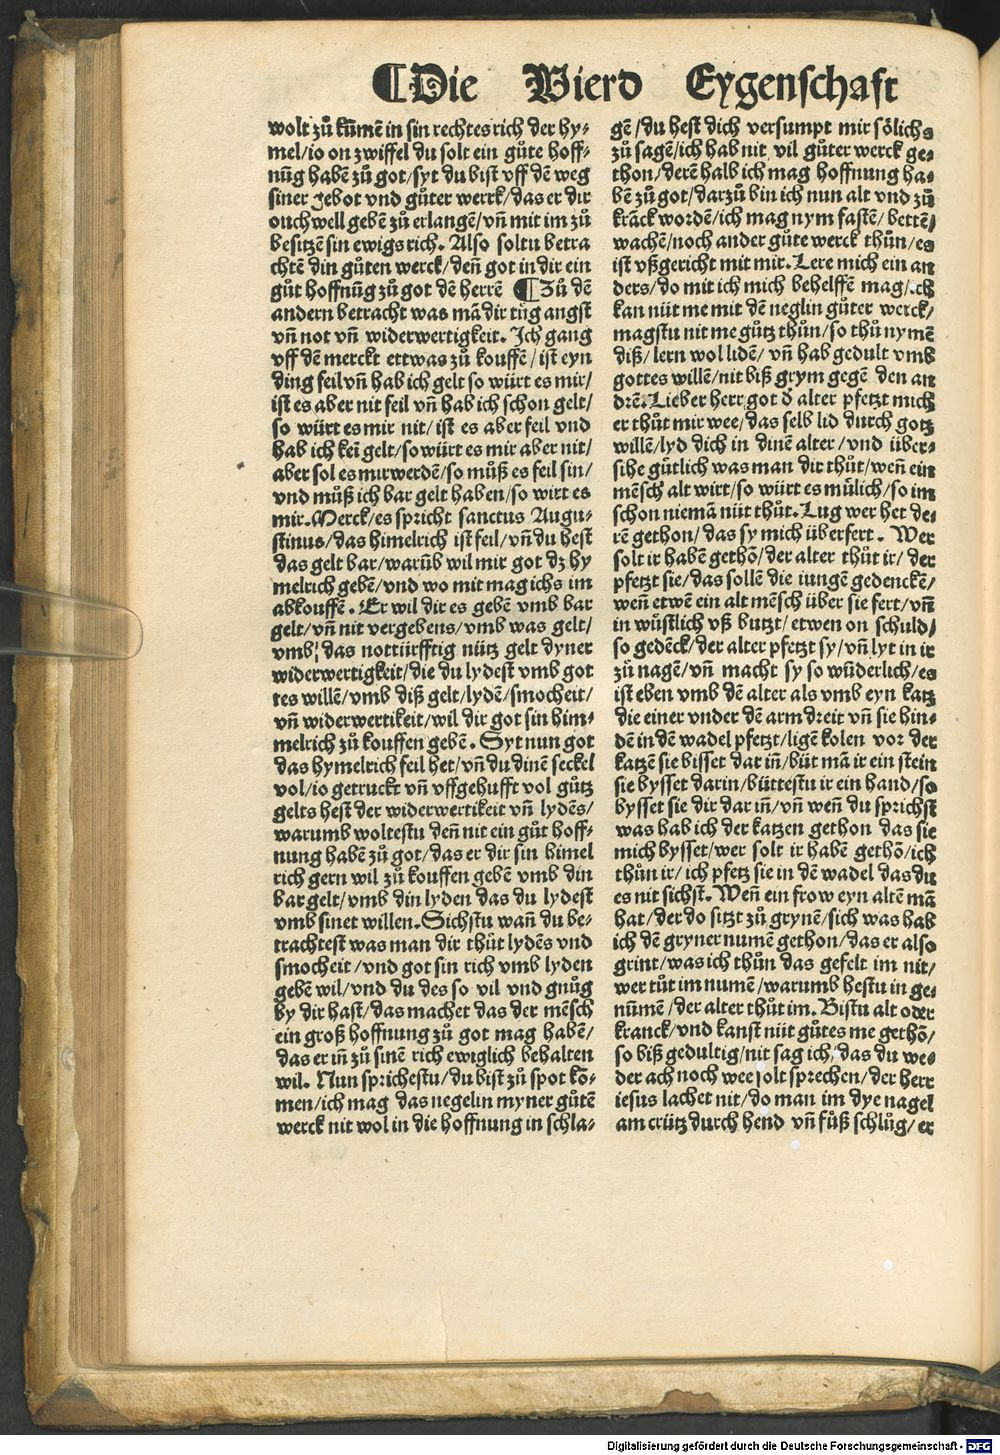 ¶Die Vierd Eygenschaft
wolt zů kum̄ē in sin rechtes rich der hy-
mel/io on zwiffel du solt ein gůte hoff-
nūg habē zů got/syt du bist vff dē weg
siner gebot vnd gůter werck/das er dir
ouch well gebē zů erlangē/vn̄ mit im zů
besitzē sin ewigs rich. Also soltu betra
chtē din gůten werck/den̄ got in dir ein
gůt hoffnūg zů got dē herrē ¶Zů dē
andern betracht was mā dir tůg angst
vn̄ not vn̄ widerwertigkeit. Ich gang
vff dē merckt ettwas zů kouffē/ist eyn
ding feil vn̄ hab ich gelt so würt es mir/
ist es aber nit feil vn̄ hab ich schon gelt/
so würt es mir nit/ist es aber feil vnd
hab ich keī gelt/so würt es mir aber nit/
aber sol es mir werdē/so můß es feil sin/
vnd můß ich bar gelt haben/so wirt es
mir. Merck/es spricht sanctus Augu-
stinus/das himelrich ist feil/vn̄ du hest
das gelt bar/warūb wil mir got dz hy
melrich gebē/vnd wo mit mag ichs im
abkouffē. Er wil dir es gebē vmb bar
gelt/vn̄ nit vergebens/vmb was gelt/
vmb das nottürfftig nütz gelt dyner
widerwertigkeit/die du lydest vmb got
tes willē/vmb diß gelt/lydē/smocheit/
vn̄ widerwertikeit/wil dir got sin him-
melrich zů kouffen gebē. Syt nun got
das hymelrich feil het/vn̄ du dinē seckel
vol/io getruckt vn̄ vffgehufft vol gůtz
gelts hest der widerwertikeit vn̄ lydēs/
warumb woltestu den̄ nit ein gůt hoff-
nung habē zů got/das er dir sin himel
rich gern wil zů kouffen gebē vmb din
bar gelt/vmb din lyden das du lydest
vmb sinet willen. Sichstu wan̄ du be-
trachtest was man dir thůt lydēs vnd
smocheit/vnd got sin rich vmb lyden
gebē wil/vnd du des so vil vnd gnůg
by dir hast/das machet das der mēsch
ein groß hoffnung zů got mag habē/
das er in̄ zů sinē rich ewiglich behalten
wil. Nun sprichestu/du bist zů spot kō-
men/ich mag das negelin myner gůtē
werck nit wol in die hoffnung in schla-
gē/du hest dich versumpt mir sölichs
zů sagē/ich hab nit vil gůter werck ge-
thon/derē halb ich mag hoffnung ha-
bē zů got/darzů bin ich nun alt vnd zů
kranck wordē/ich mag nym fastē/bettē/
wachē/noch ander gůte werck thůn/es
ist vßgericht mit mir. Lere mich ein an
ders/do mit ich mich behelffē mag/ich
kan nüt me mit dē neglin gůter werck/
magstu nit me gůtz thůn/so thů nymē
diß/lern wol lidē/vn̄ hab gedult vmb
gottes willē/nit biß grym gegē den an
drē. Lieber herr got d̄ alter pfetzt mich
er thůt mir wee/das selb lid durch gotz
willē/lyd dich in dinē alter/vnd über-
sihe gütlich was man dir thůt/wen̄ ein
mēsch alt wirt/so würt es mülich/so im
schon niemā nüt thůt. Lug wer het de-
rē gethon/das sy mich überfert. Wer
solt ir habē gethō/der alter thůt ir/der
pfetzt sie/das sollē die iungē gedenckē/
wen̄ etwē ein alt mēsch über sie fert/vn̄
in wüstlich vß butzt/etwen on schuld/
so gedēck/der alter pfetzt sy/vn̄ lyt in ir
zů nagē/vn̄ macht sy so wūderlich/es
ist eben vmb dē alter als vmb eyn katz
die einer vnder dē arm dreit vn̄ sie hin-
dē in dē wadel pfetzt/ligē kolen vor der
katzē sie bisset dar in̄/büt mā ir ein stein
sie bysset darin/büttestu ir ein hand/so
bysset sie dir dar in̄/vn̄ wen̄ du sprichst
was hab ich der katzen gethon das sie
mich bysset/wer solt ir habē gethō/ich
thůn ir/ich pfetz sie in dē wadel das du
es nit sichst. Wen̄ ein frow eyn altē mā
hat/der do sitzt zů grynē/sich was hab
ich dē gryner numē gethon/das er also
grint/was ich thůn das gefelt im nit/
wer tůt im numē/warumb hestu in ge-
nūmē/der alter thůt im. Bistu alt oder
kranck/vnd kanst nüt gůtes me gethō/
so biß gedultig/nit sag ich/das du we-
der ach noch wee solt sprechen/der herr
iesus lachet nit/do man im dye nagel
am crütz durch hend vn̄ fůß schlůg/er
Digitalisierung gefördert durch die Deutsche Forschungsgemeinschaft - DFG